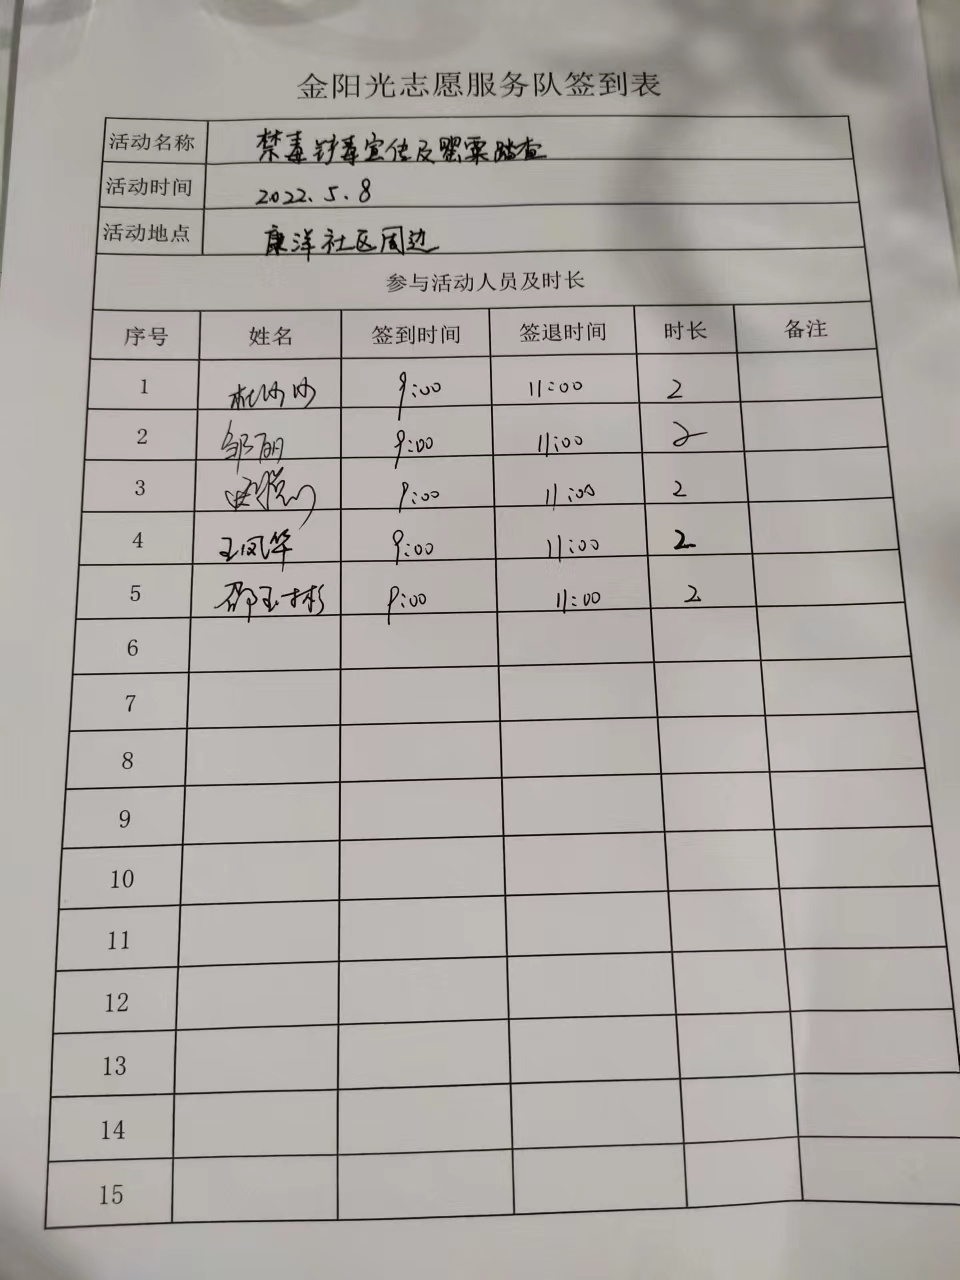 金阳光志愿服务队签到表
活动名称 禁毒涉毒宣传及罂粟踏查
活动时间 2022.5.8
活动地点 康洋社区周边
参与活动人员及时长
序号 姓名 签到时间 签退时间 时长 备注
1 杜沙沙 9:00 11:00 2
2 邹丽 9:00 11:00 2
3 9:00 11:00 2
4 王凤华 9:00 11:00 2
5 邵玉彬 9:00 11:00 2
6
7
8
9
10
11
12
13
14
15